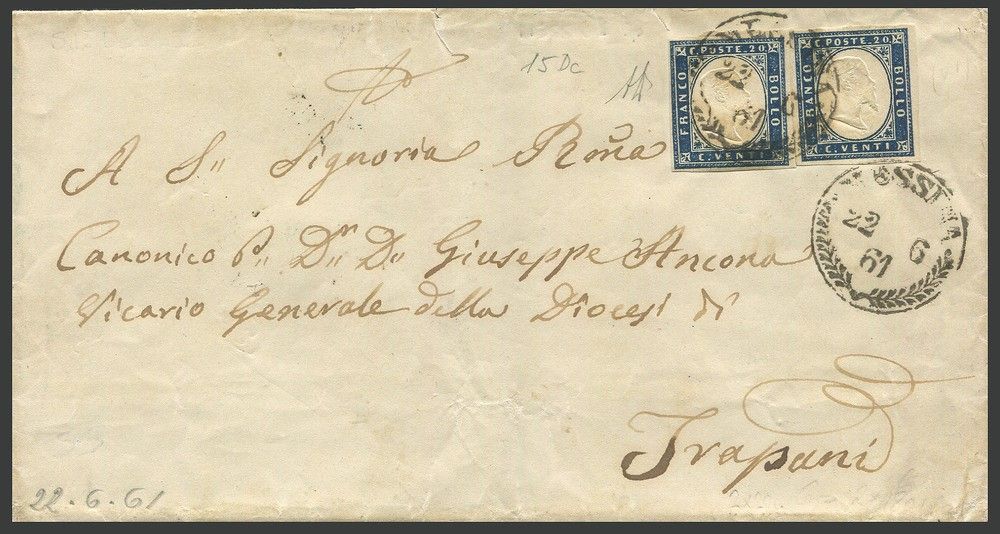 C. POSTE. 20.
FRANCO
BOLLO
C. VENTI
C. POSTE. 20.
FRANCO
BOLLO
C. VENTI
22
61
15 Dc
A S.. Signoria Rm̃a
MESSINA
22 6
61
Canonico D.n D.. Giuseppe Ancona
Vicario Generale della Diocesi di
Trapani
22-6-61